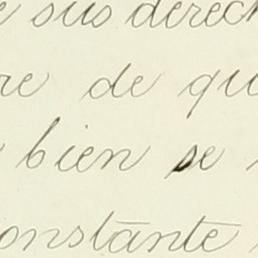 e sus derech
re de qu
bien se
onstante